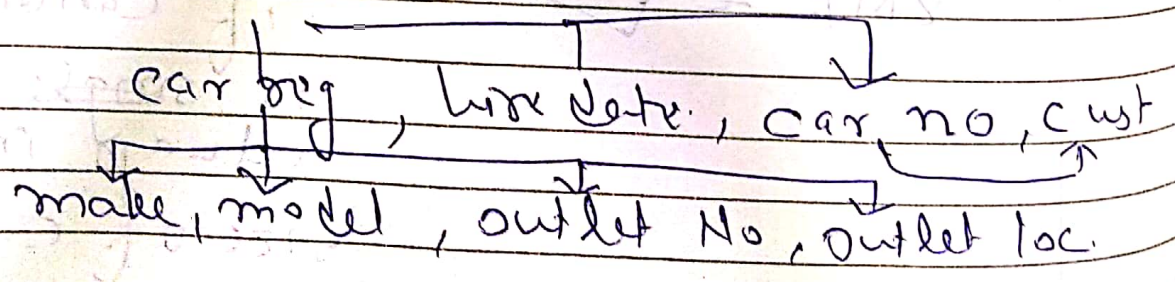 car reg, hire date, car no, cust
make, model, outlet No, outlet loc.